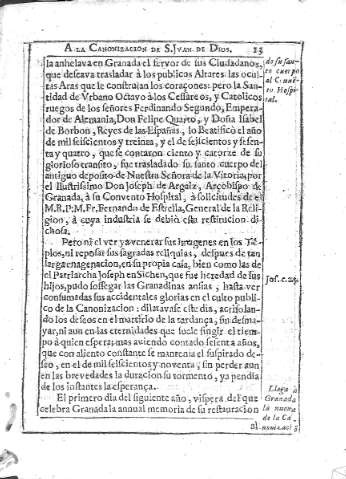 A LA CANONIZACION DE S. IVAN DE DIOS. 25
la anhelava en Granada el fervor de sus Ciudadanos,
que deseava trasladar à los publicos Altares las ocul
tas Aras que le construìan los coraçones: pero la San-
tidad de Vrbano Octavo à los Cessareos, y Catolicos
ruegos de los señores Ferdinando Segundo, Empera-
dor de Alemania, Don Felipe Quarto, y Doña Isabel
de Borbon, Reyes de las Españas, lo Beatificò el año
de mil seiscientos y treinta, y el de seiscientos y sesen-
ta y quatro, que se contaron ciento y catorze de su
glorioso transito, fue trasladado su santo cuerpo del
antiguo deposito de Nuestra Señora de la Vitoria, por
el Ilustrissimo Don Joseph de Argaiz, Arçobispo de
Granada, à su Convento Hospital, à solicitudes de el
M.R.P.M. Fr. Fernando de Estrella, General de la Reli-
gion, à cuya industria se debiò esta restitucion di-
chosa.
Pero ni el ver ya venerar sus imagenes en los Tẽ-
plos, ni reposar sus sagradas reliquias, despues de tan
larga enagenacion, en su propia casa, bien como las de
el Patriarcha Joseph en Sichen, que fue heredad de sus
hijos, pudo sossegar las Granadinas ansias, hasta ver
consumadas sus accidentales glorias en el culto publi-
co de la Canonizacion: dilatavase este dia, acrisolan-
do los deseos en el martirio de la tardança, sin desma-
yar, ni aun en las eternidades que suele fingir el tiem-
po à quien espera: mas aviendo contado sesenta años,
que con aliento constante se mantenia el suspirado de-
seo, en el de mil seiscientos y noventa, sin perder aun
en las brevedades la duracion su tormento, ya pendia
de los instantes la esperança.
El primero dia del siguiente año, vispera del que
celebra Granada la annual memoria de su restauracion
al
do su san-
to cuerpo
al Convẽ-
to Hospi-
tal.
Jos. c. 24.
Llega à
Granada
la nueva
de la Ca-
nonizaciõ